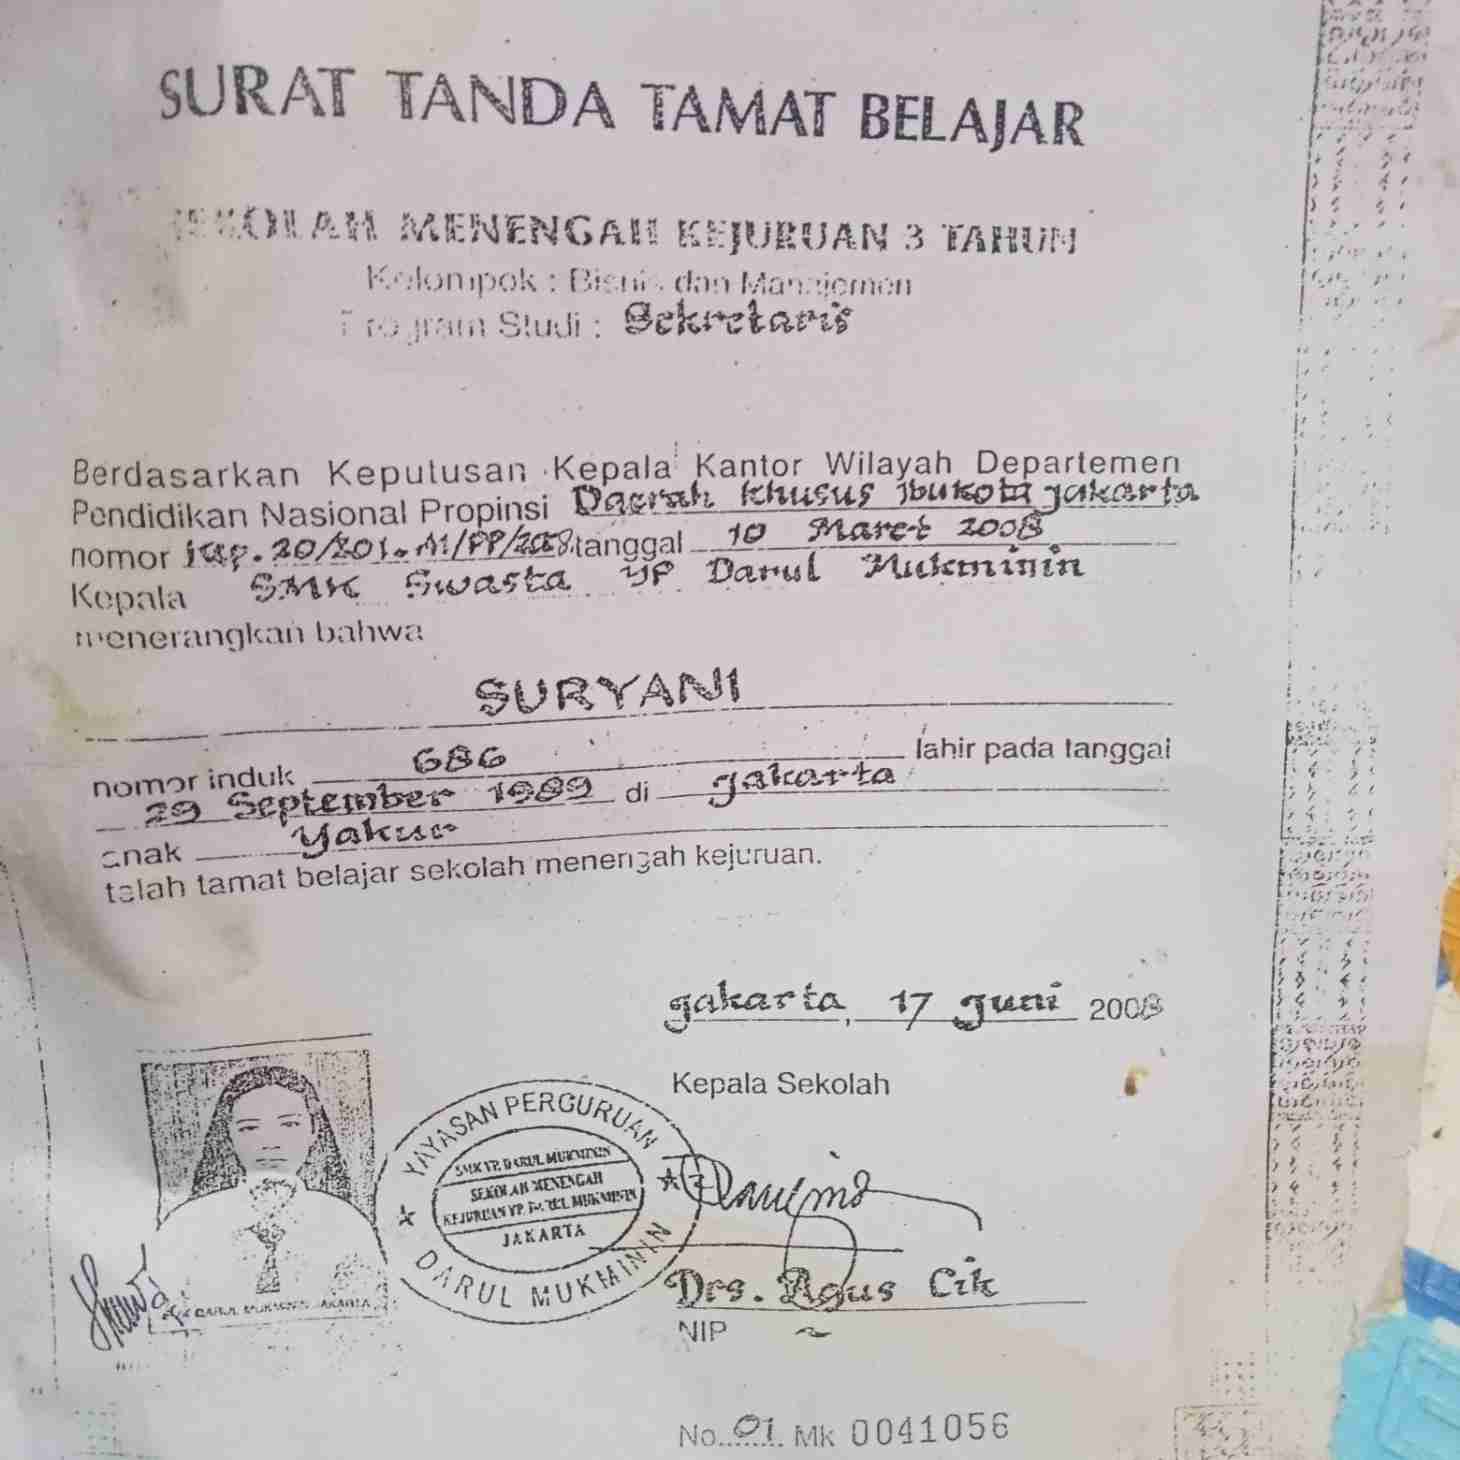 SURAT TANDA TAMAT BELAJAR
SEKOLAH MENENGAH KEJURUAN 3 TAHUN
Kelompok : Bisnis dan Manajemen
Program Studi : Sekretaris
Berdasarkan Keputusan Kepala Kantor Wilayah Departemen
Pendidikan Nasional Propinsi Daerah Khusus Ibukota Jakarta
nomor tanggal 10 Maret 2008
Kepala SMK Swasta YP Darul Mukminin
menerangkan bahwa
SURYANI
nomor induk 686 lahir pada tanggal
29 September 1989 di Jakarta
anak Yakur
telah tamat belajar sekolah menengah kejuruan.
Jakarta, 17 Juni 2008
Kepala Sekolah
YAYASAN PERGURUAN
SMK YP. DARUL MUKMININ
SEKOLAH MENENGAH
KEJURUAN YP. DARUL MUKMININ
JAKARTA
DARUL MUKMININ
Drs. Agus Cik
NIP ~
DARUL MUKMININ JAKARTA
No. 01 Mk 0041056